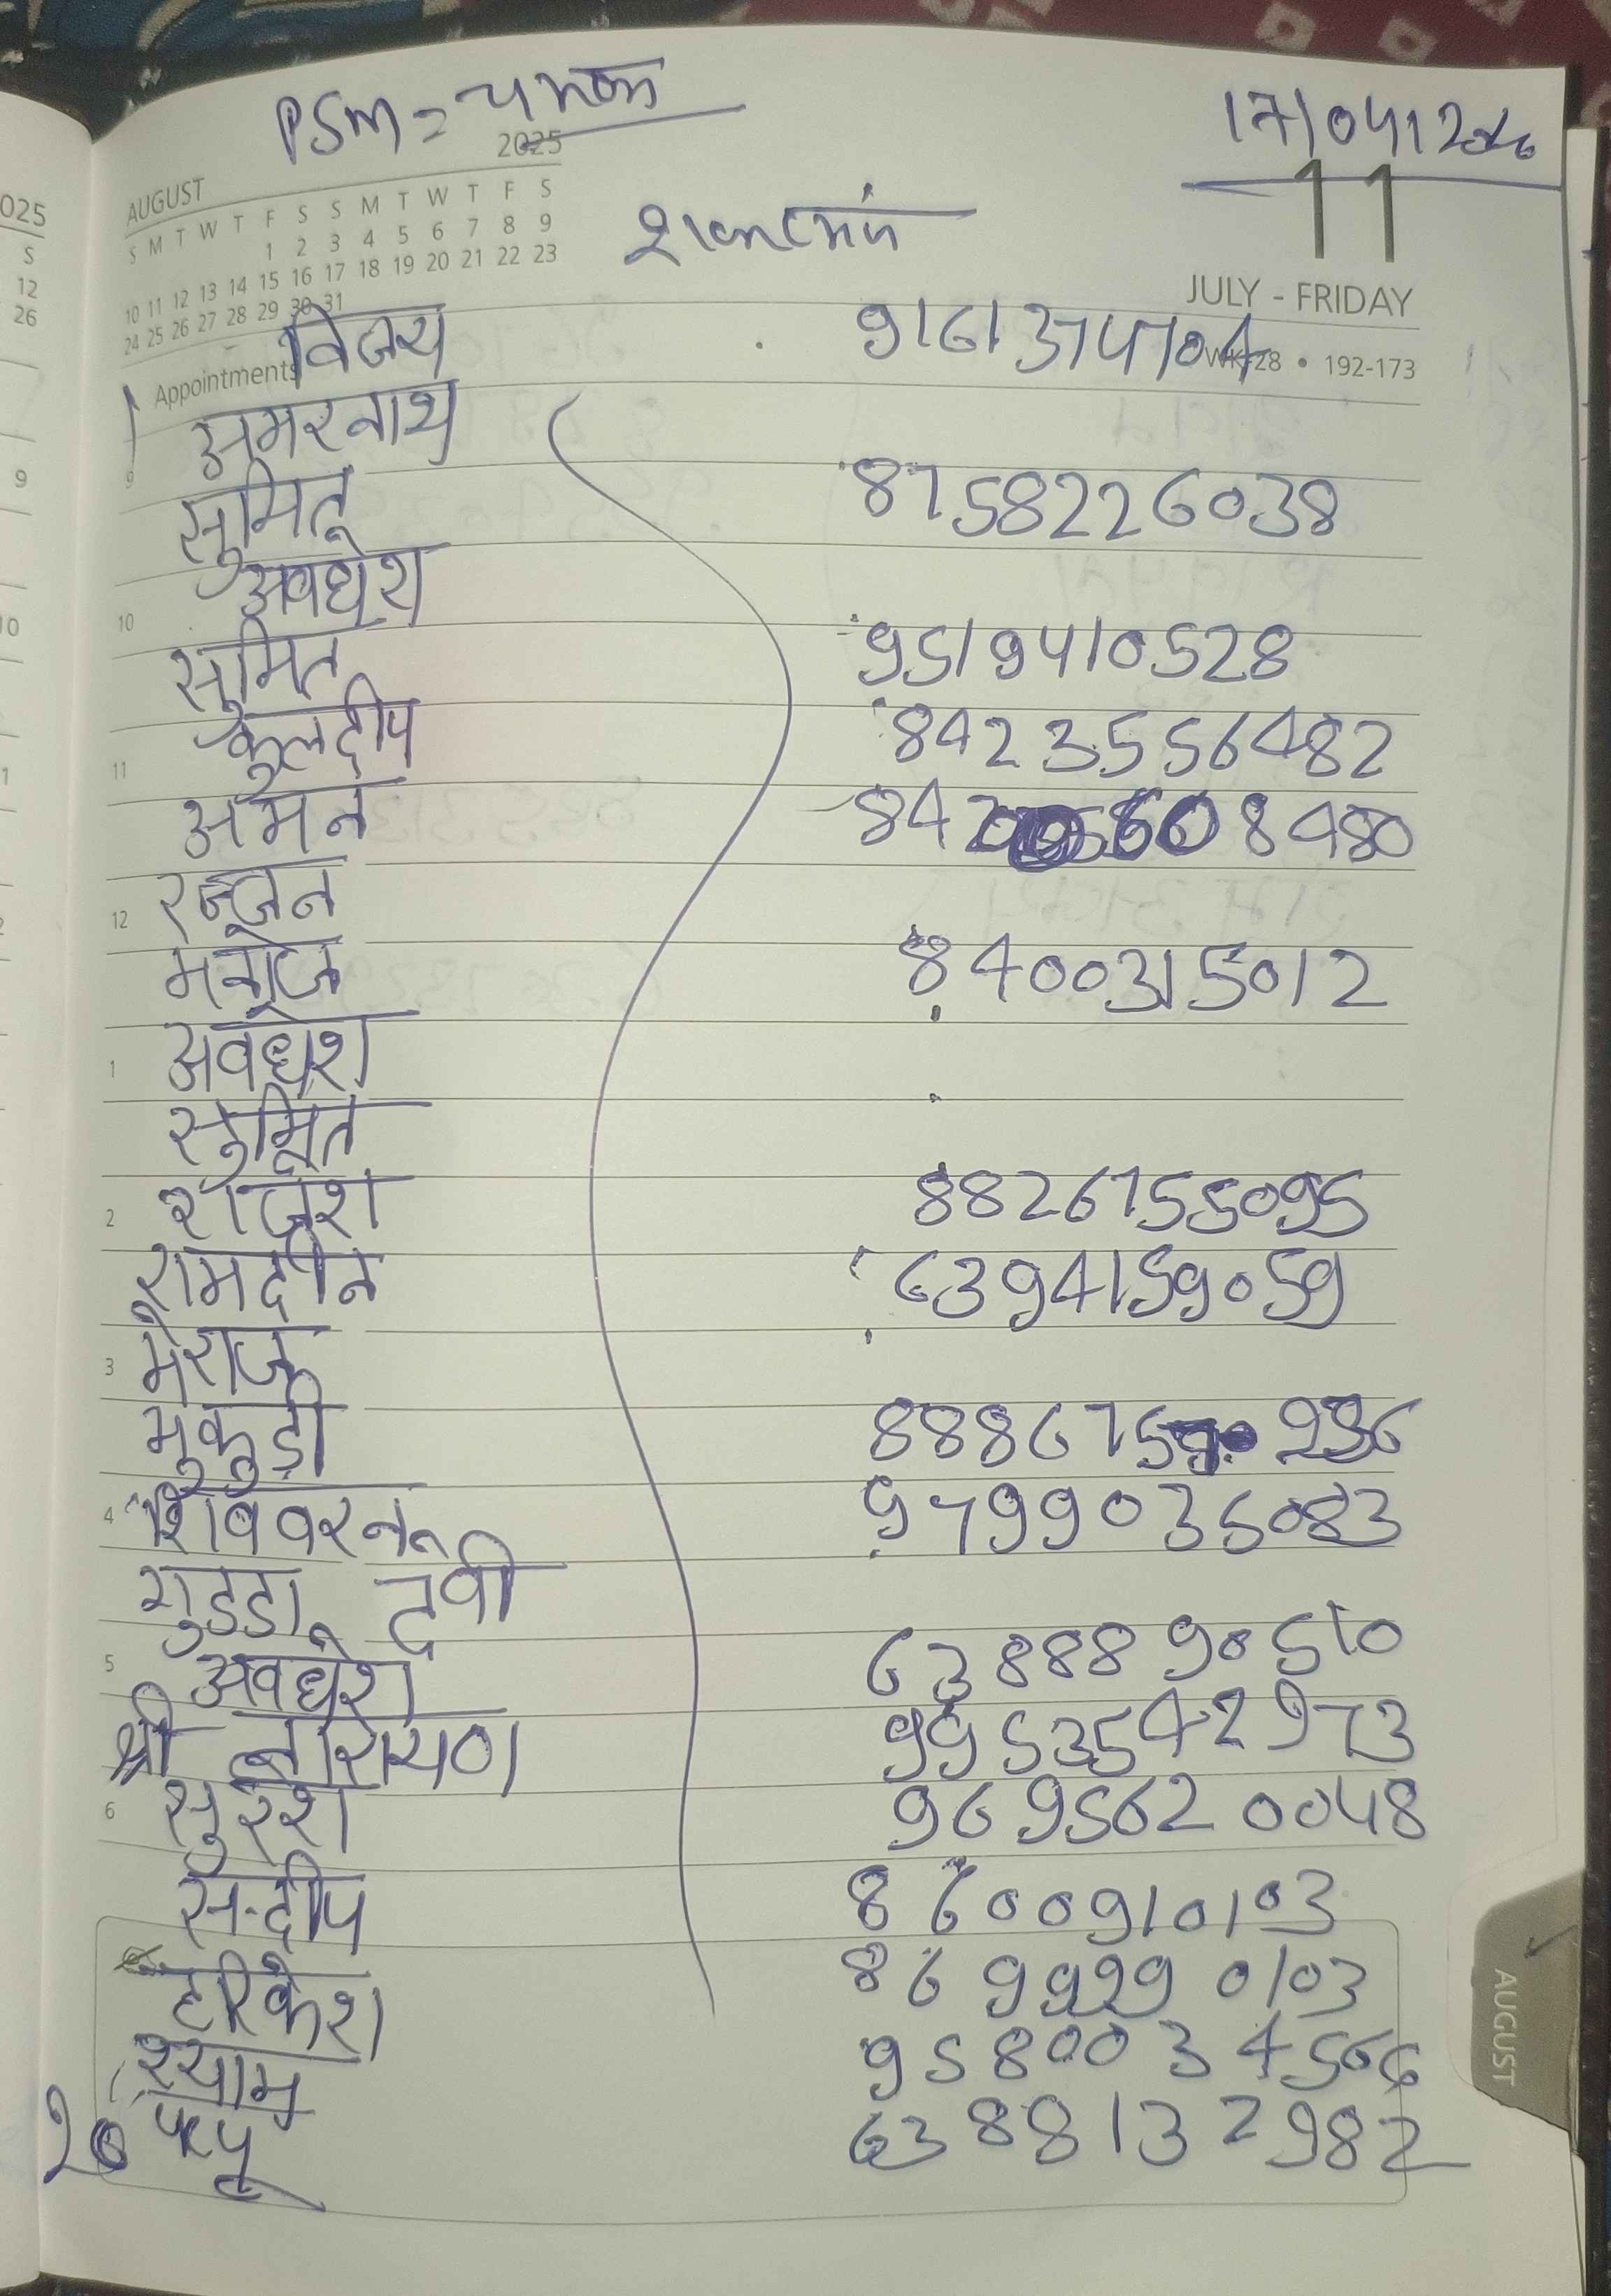 PSM =
17/04/2026
2025
AUGUST
S M T W T F S S M T W T F S
1 2 3 4 5 6 7 8 9
10 11 12 13 14 15 16 17 18 19 20 21 22 23
24 25 26 27 28 29 30 31
11
JULY - FRIDAY
WK-28 • 192-173
Appointments
विजय 9161374704
अमरनाथ
सुमित 8758226038
अवधेश
सुमित 9519410528
कुलदीप 8423556482
अमन
रन्जन
मनोज 8400315012
अवधेश
सुमित
राजेश 8826755095
रामदीन 6394159059
मेराज
मुकुड़ी
शिववरन 9799035083
गुडडा देवी
अवधेश 6388890510
श्री नारायण 9953542973
सुरेश 9695620048
सन्दीप 8600910103
हरिकेश 8699990103
श्याम 9580034566
पप्पू 6388132982
9
10
11
12
1
2
3
4
5
6
AUGUST
025
S
12
26
9
10